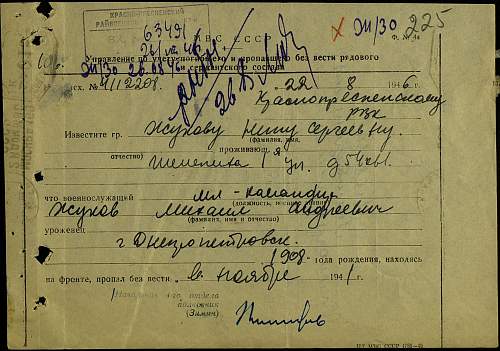 КРАСНО-ПРЕСНЕНСКИЙ
63491
ЭИ/30
225
ВС СССР
Ф. № 4
ЭИ/30 26.08.46
Управление по учету погибшего и пропавшего без вести рядового
и сержантского состава
исх. № 4/12201.
22 8 1946 г.
Краснопресненскому
РВК
Известите гр. Жукову Нину Сергеевну
(фамилия, имя,
отчество) проживающ.
Шелепиха 1я ул. д 54 кв1.
что военнослужащий мл-командир
(должность, воен.
Жуков Михаил Андреевич
(фамилия, имя и отчество)
уроженец
г Днепропетровск.
1908 -года рождения, находясь
на фронте, пропал без вести в ноябре 1941 г.
Начальник 4-го отдела
полковник
(Зимин)